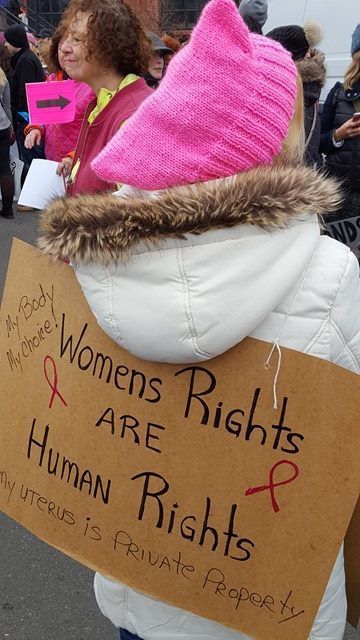 My Body
My Choice!
Womens Rights
ARE
Human Rights
my uterus is Private Property